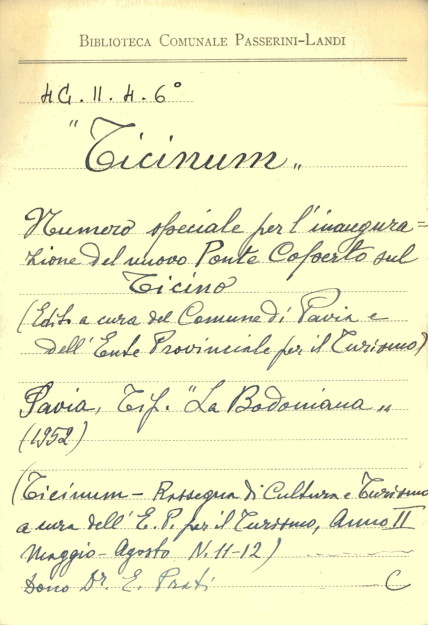 BIBLIOTECA COMUNALE PASSERINI-LANDI
4G.II.4.6°
"Ticinum"
Numero speciale per l'inaugura=
zione del nuovo Ponte Coperto sul
Ticino
(Edito a cura del Comune di Pavia e
dell'Ente Provinciale per il Turismo)
Pavia, Tip. "La Bodoniana"
(1952)
(Ticinum - Rassegna di Cultura e Turismo
a cura dell'E.P. per il Turismo, Anno II
Maggio-Agosto N. 11-12)
Dono Dr. E. Prati C